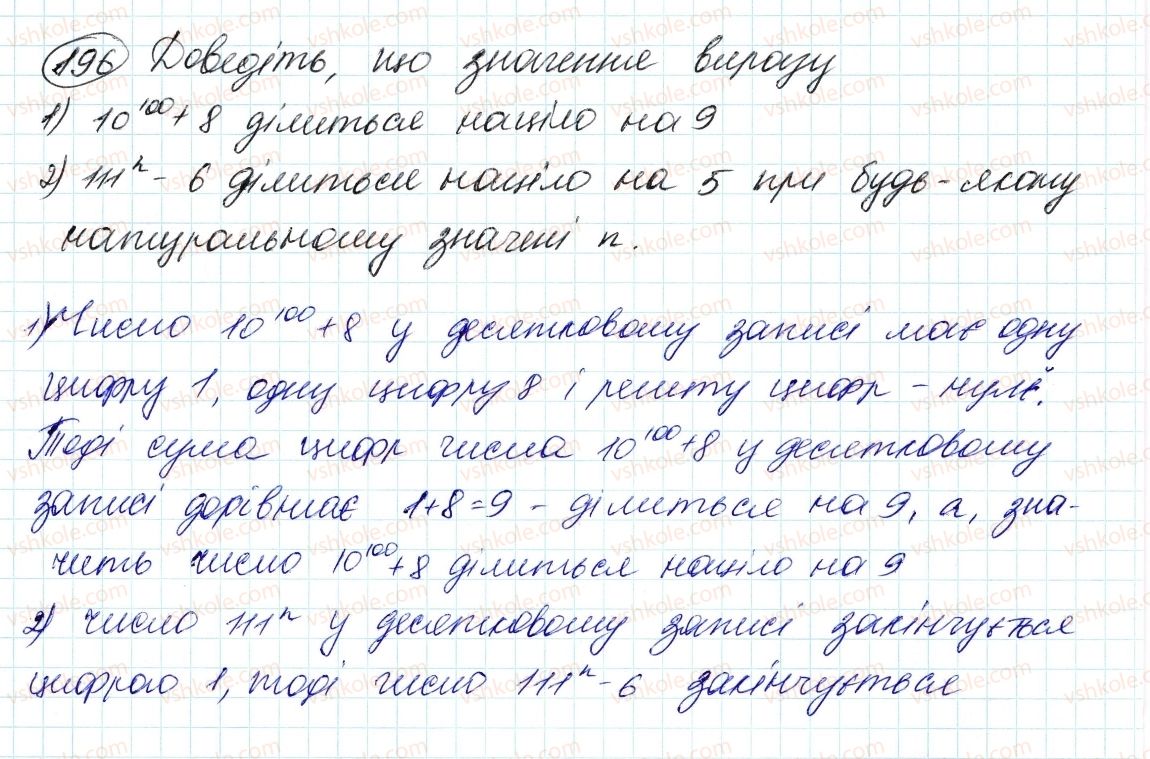 196 Доведіть, що значення виразу
1) 10¹⁰⁰ + 8 ділиться націло на 9
2) 111ⁿ - 6 ділиться націло на 5 при будь-якому
натуральному значені n.
1) Число 10¹⁰⁰ + 8 у десятковому записі має одну
цифру 1, одну цифру 8 і решту цифр - нулі.
Тоді сума цифр числа 10¹⁰⁰ + 8 у десятковому
записі дорівнює 1+8=9 - ділиться на 9, а, зна-
чить число 10¹⁰⁰ + 8 ділиться націло на 9
2) число 111ⁿ у десятковому записі закінчується
цифрою 1, тоді число 111ⁿ - 6 закінчується